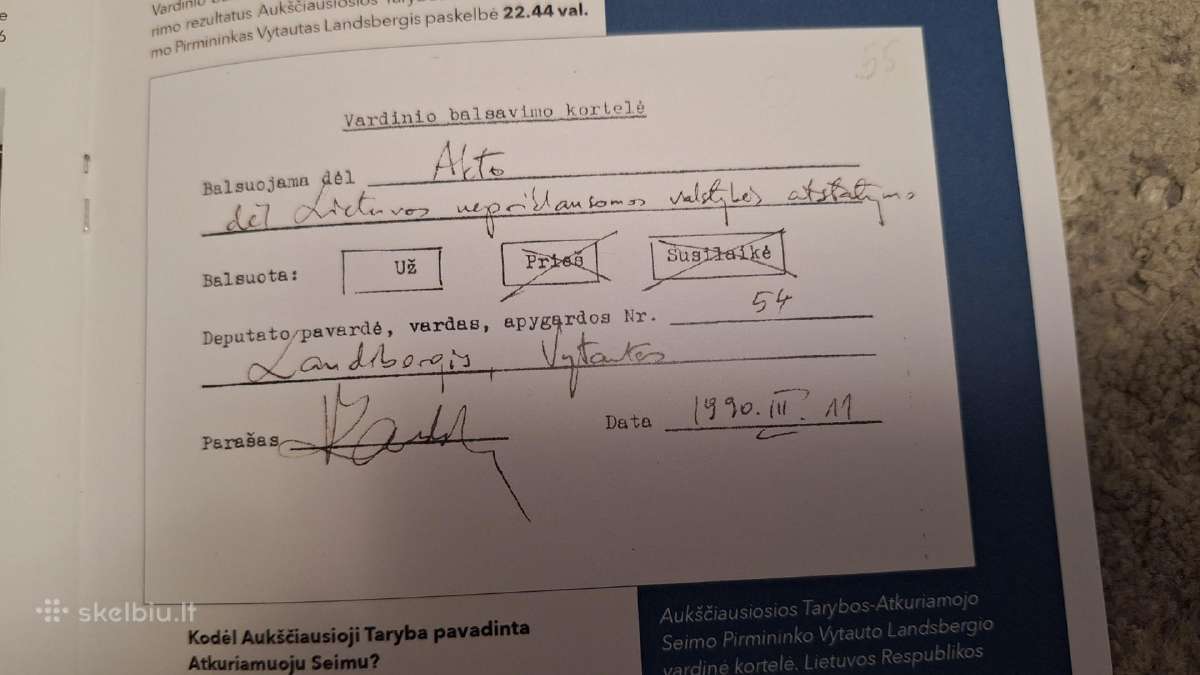 rimo rezultatus Aukščiausiosios
mo Pirmininkas Vytautas Landsbergis paskelbė 22.44 val.
55
Vardinio balsavimo kortelė
Balsuojama dėl Akto
dėl Lietuvos nepriklausomos valstybės atstatymo
Balsuota: Už Prieš Susilaikė
Deputato pavardė, vardas, apygardos Nr. 54
Landsbergis, Vytautas
Parašas Data 1990.III.11
skelbiu.lt
Kodėl Aukščiausioji Taryba pavadinta
Atkuriamuoju Seimu?
Aukščiausiosios Tarybos-Atkuriamojo
Seimo Pirmininko Vytauto Landsbergio
vardinė kortelė. Lietuvos Respublikos